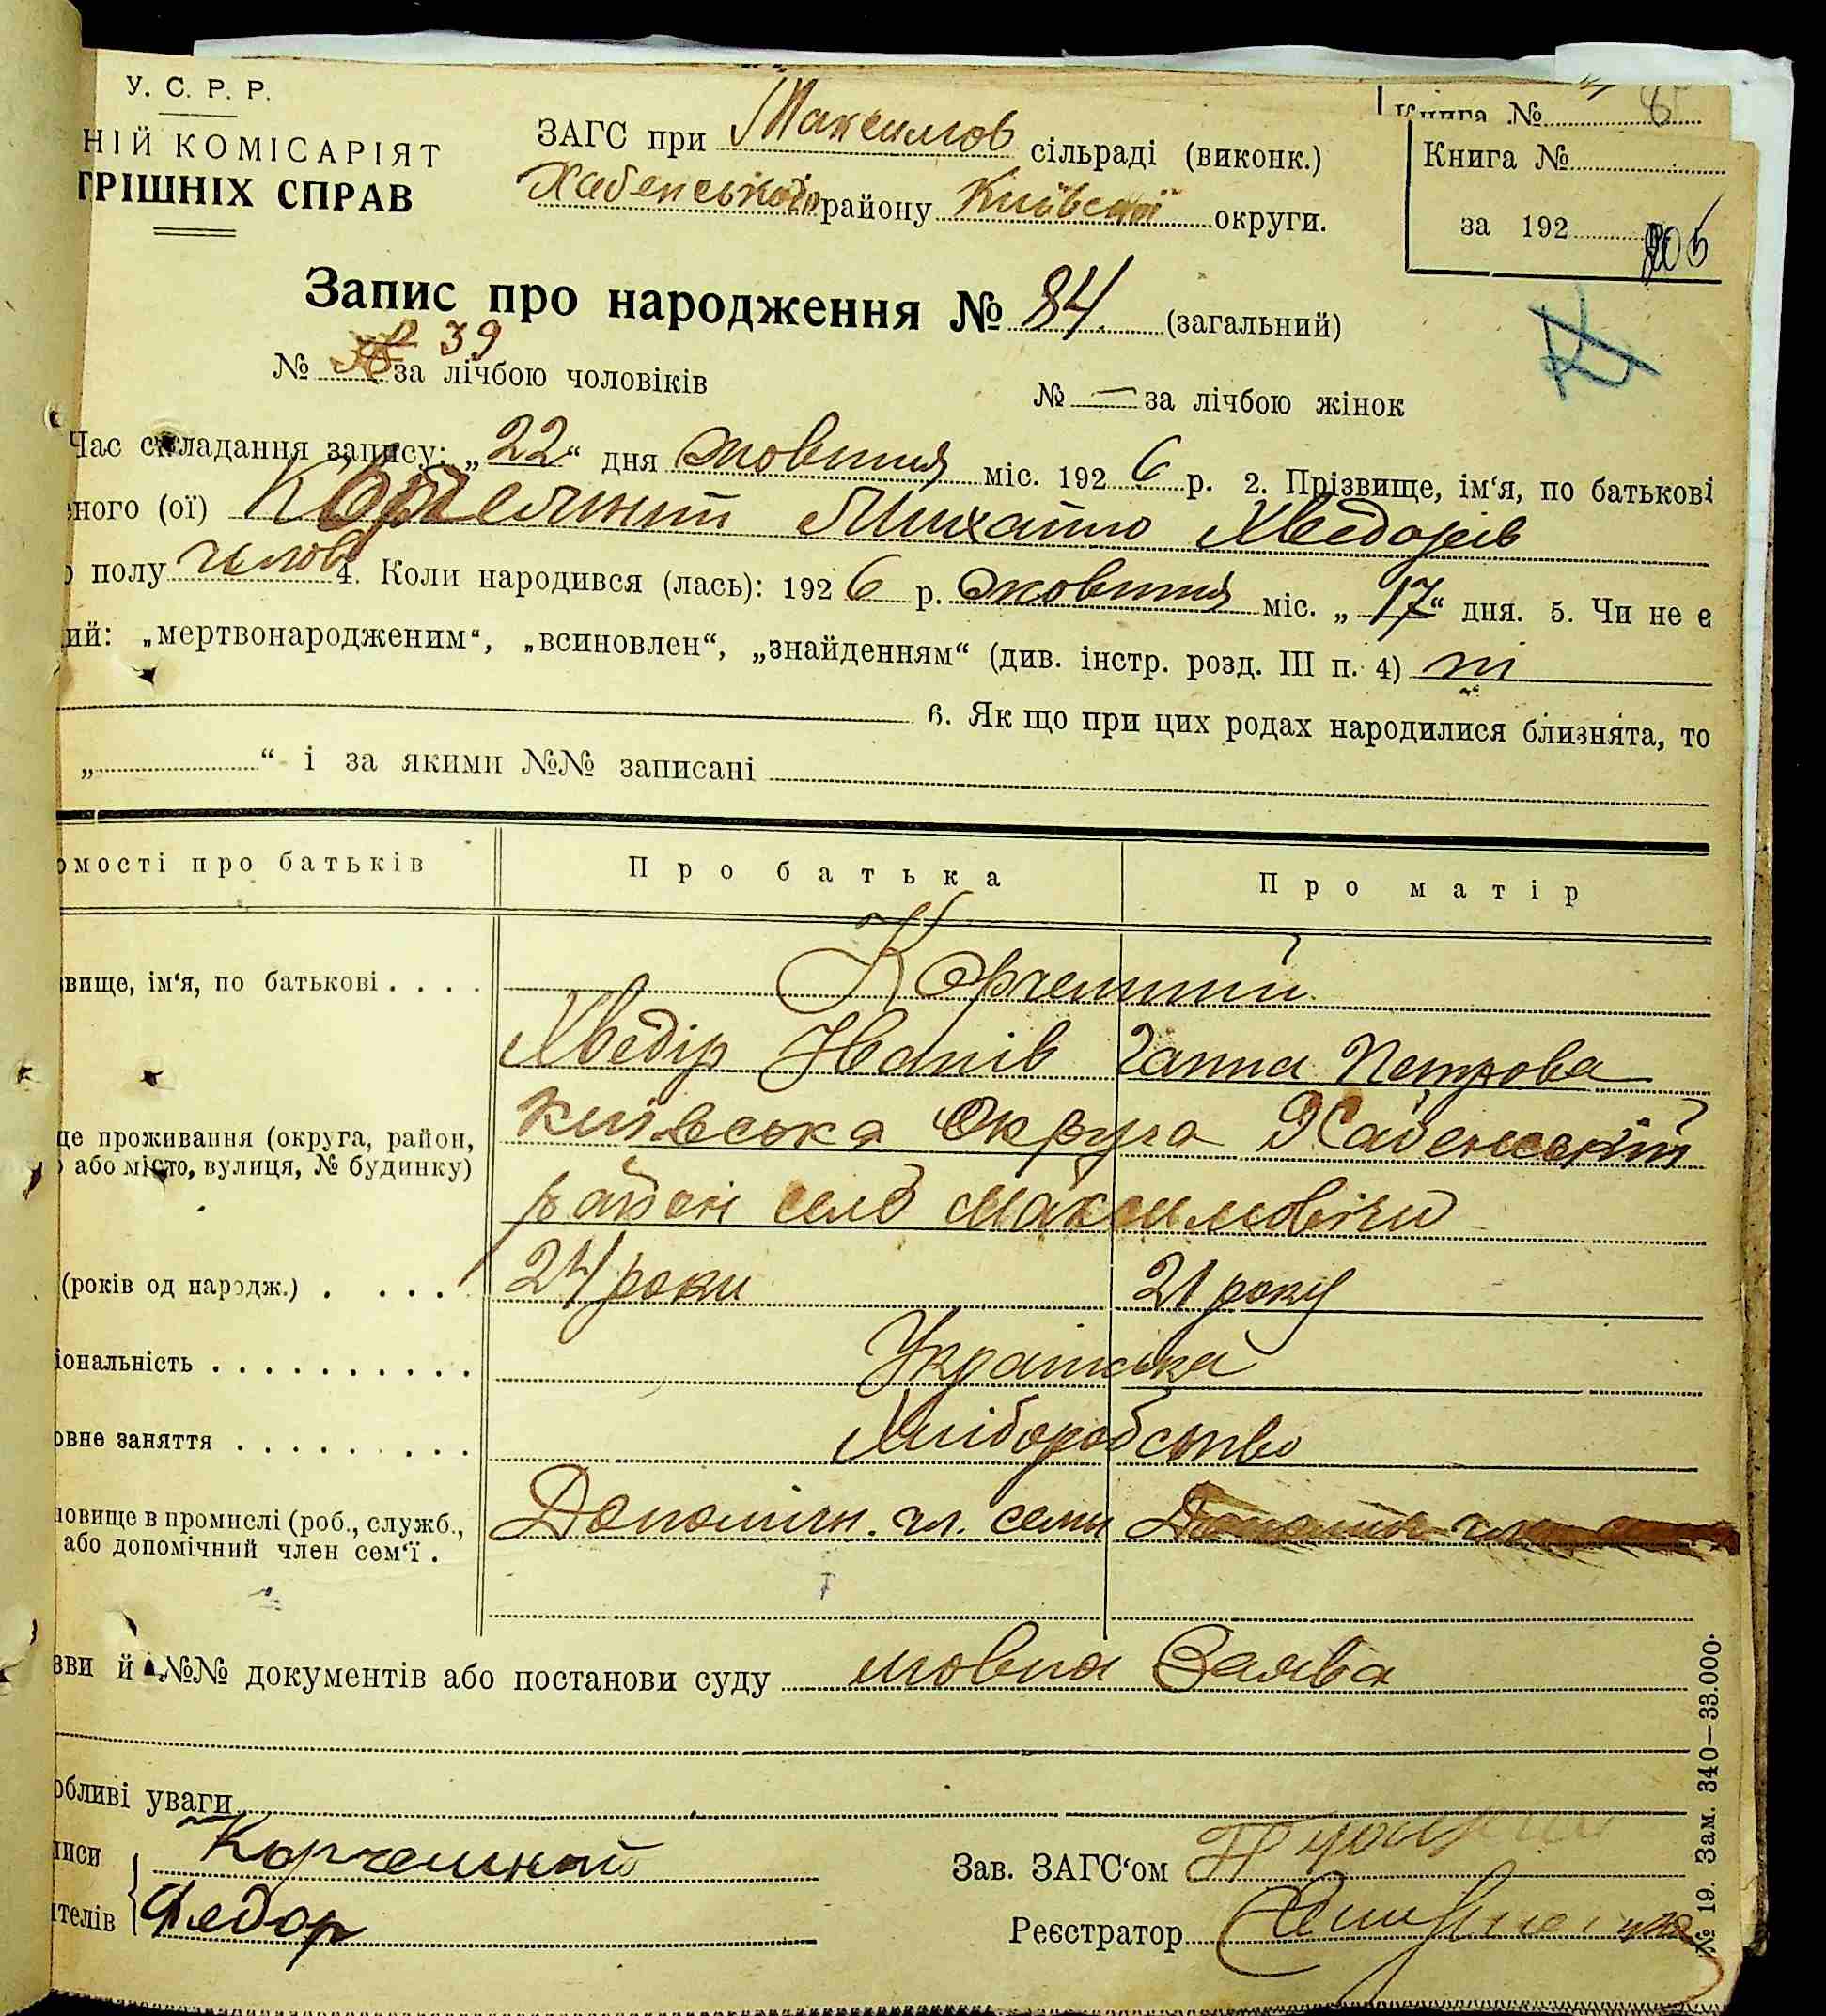 У. С. Р. Р.
НІЙ КОМІСАРІЯТ
ТРІШНІХ СПРАВ
ЗАГС при Максимов сільраді (виконк.)
Хабенського району Київської округи.
Книга № 8
Книга №
за 192
Запис про народження № 84 (загальний)
39
№ за лічбою чоловіків
№ — за лічбою жінок
Час складання запису: „22“ дня жовтня міс. 192 6 р. 2. Прізвище, ім‘я, по батькові
ного (ої) Михайло Хведорів
полу чолов 4. Коли народився (лась): 192 6 р. жовтня міс. „17“ дня. 5. Чи не є
ий: „мертвонародженим“, „всиновлен“, „знайденням“ (див. інстр. розд. III п. 4) ні
6. Як що при цих родах народилися близнята, то
„ “ і за якими №№ записані
омості про батьків
Про батька
Про матір
вище, ім‘я, по батькові . . . .
Корчемний
Хведір Іванів Ганна Петрова
це проживання (округа, район,
або місто, вулиця, № будинку)
київська Округа Хабенський
район село Максимовичи
(років од народж.) . . . .
24 роки 21 року
іональність . . . . . . . . . .
Українська
овне заняття . . . . . . . . .
Хліборобство
новище в промислі (роб., служб.,
або допомічний член сем‘ї .
Допомічн. чл. семьи
зви й №№ документів або постанови суду мовна Заява
обливі уваги
писи Корчемний
ителів Федор
Зав. ЗАГС‘ом
Реєстратор
№ 19. Зам. 340—33.000.